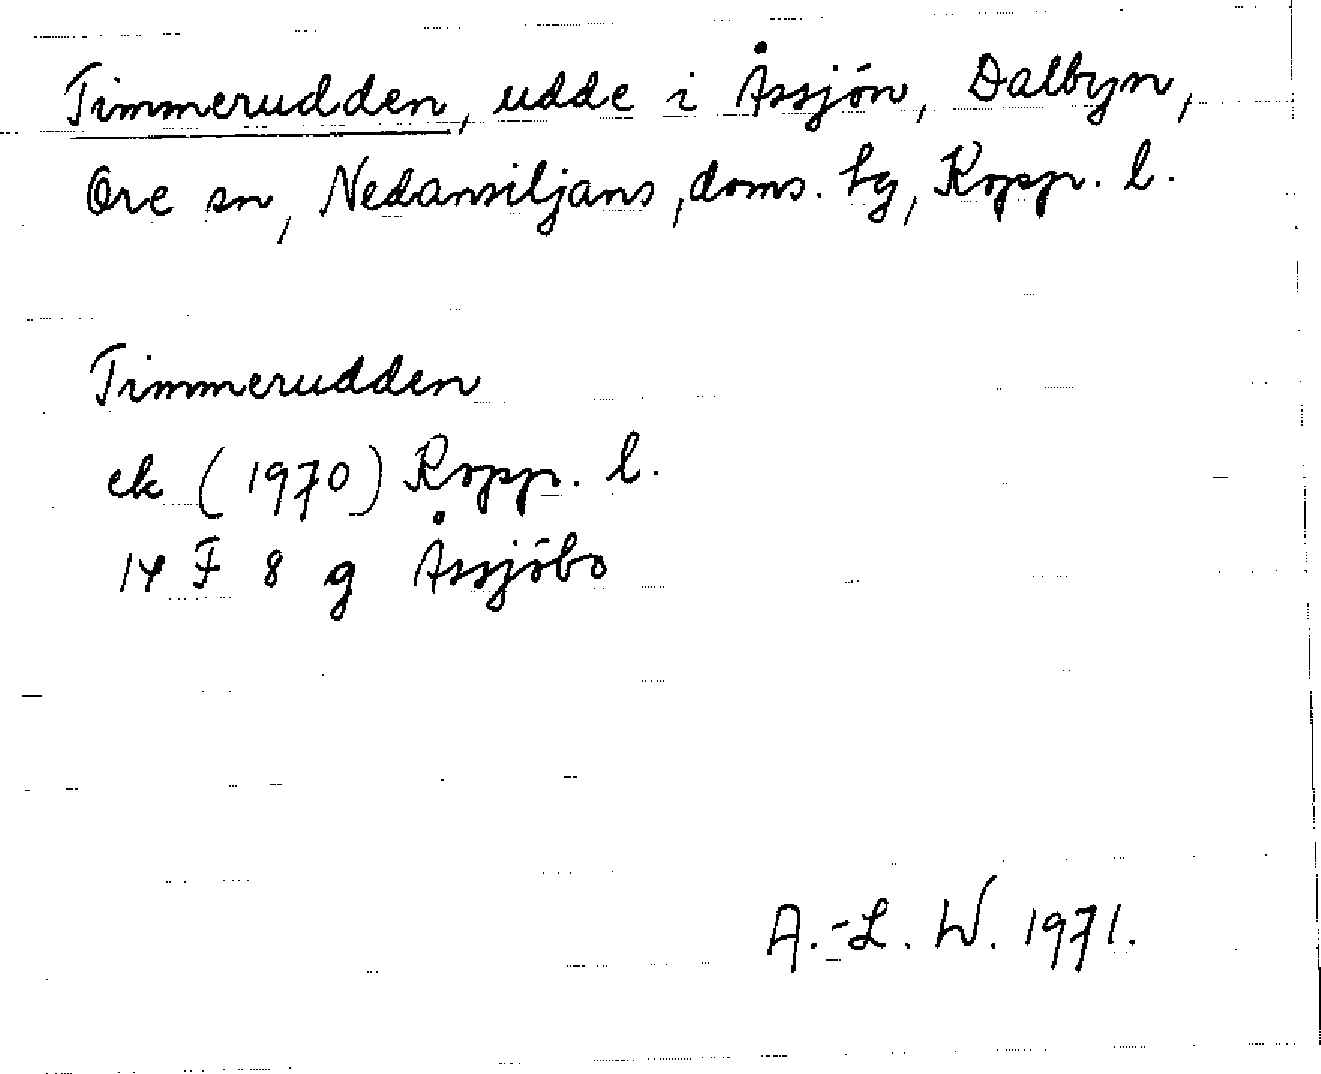 Timmerudden, udde i Åssjön, Dalbyn,
Ore sn, Nedansiljans, doms. hg, Kopp. l.
Timmerudden
ek (1970) Kopp. l.
14 F 8 g Åssjöbo
A.-L. W. 1971.